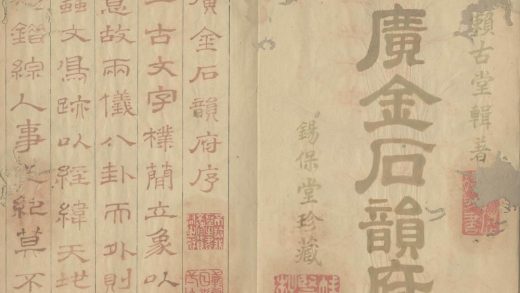 賴古堂輯著
廣金石韻府
錫保堂珍藏
廣金石韻府序
上古文字樸簡立象以
意故兩儀八卦而外則
蟲文鳥跡以經緯天地
錯綜人事之紀莫不